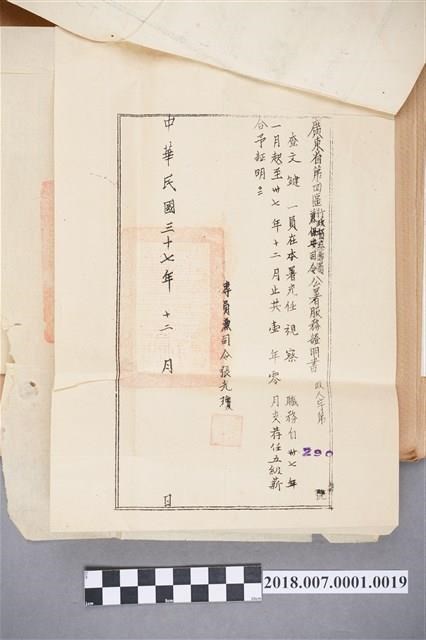 廣東省第四區行政督察專員兼保安司令公署服務證明書 政人字第 290 號
查文鍵 一員在本署充任視察 職務自卅七年
一月起至卅七年十二月止共壹年零月支荐任五級薪
合予証明
專員兼司令張光瓊
中華民國三十七年 十二 月 日
2018.007.0001.0019